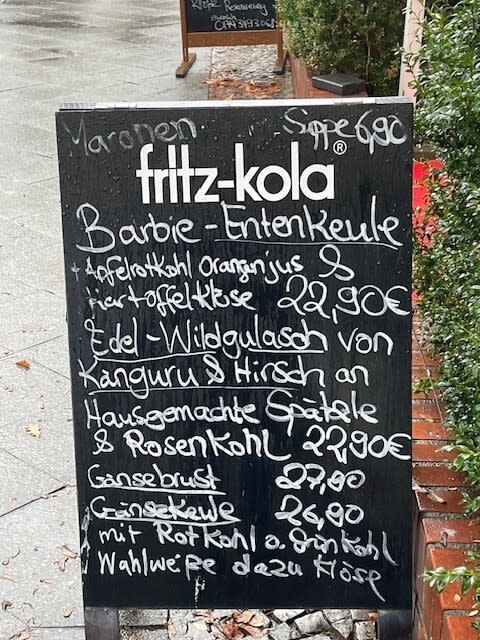 Maronen Suppe 6,90
fritz-kola®
Barbie-Entenkeule
+ Apfelrotkohl Orangenjus &
Kartoffelklöse 22,90€
Edel-Wildgulasch von
Känguru & Hirsch an
Hausgemachte Spätzle
& Rosenkohl 22,90€
Gänsebrust 27,90
Gänsekeule 26,90
mit Rotkohl o. Grünkohl
Wahlweiße dazu Klöse